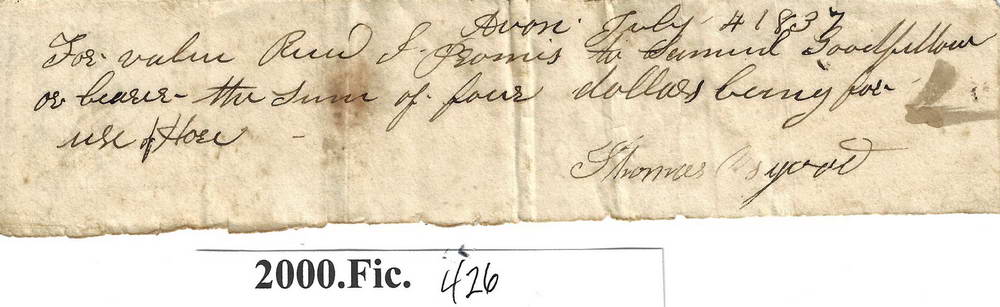 Avon July 4 1837
For value Recd I Promis to Samuel Goodfellow
or bearer the sum of four dollars being for
use of
Thomas Osgood
2000.Fic. 426